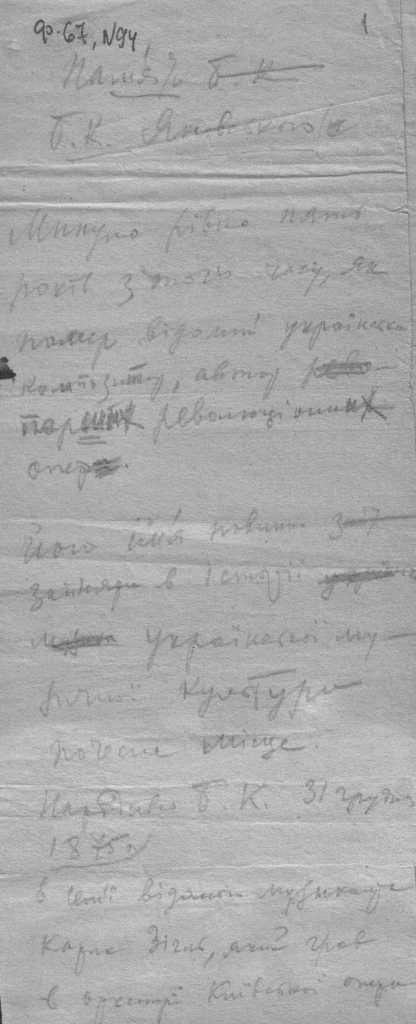 ф. 67, N94, 1
Пам'яті Б. К.
Б. К. Яновського
Минуло рівно п'ять
років з того часу, як
помер відомий українськ
композитор, автор рево-
перших революційних
опер.
Його ім'я повинно зай
зайняти в історії
української му-
зичної культури
почесне місце.
Народився Б. К. 31 грудня
1875 г.
в семї відомого музиканта
Карла Зігль, який грав
в оркестрі Київської опери